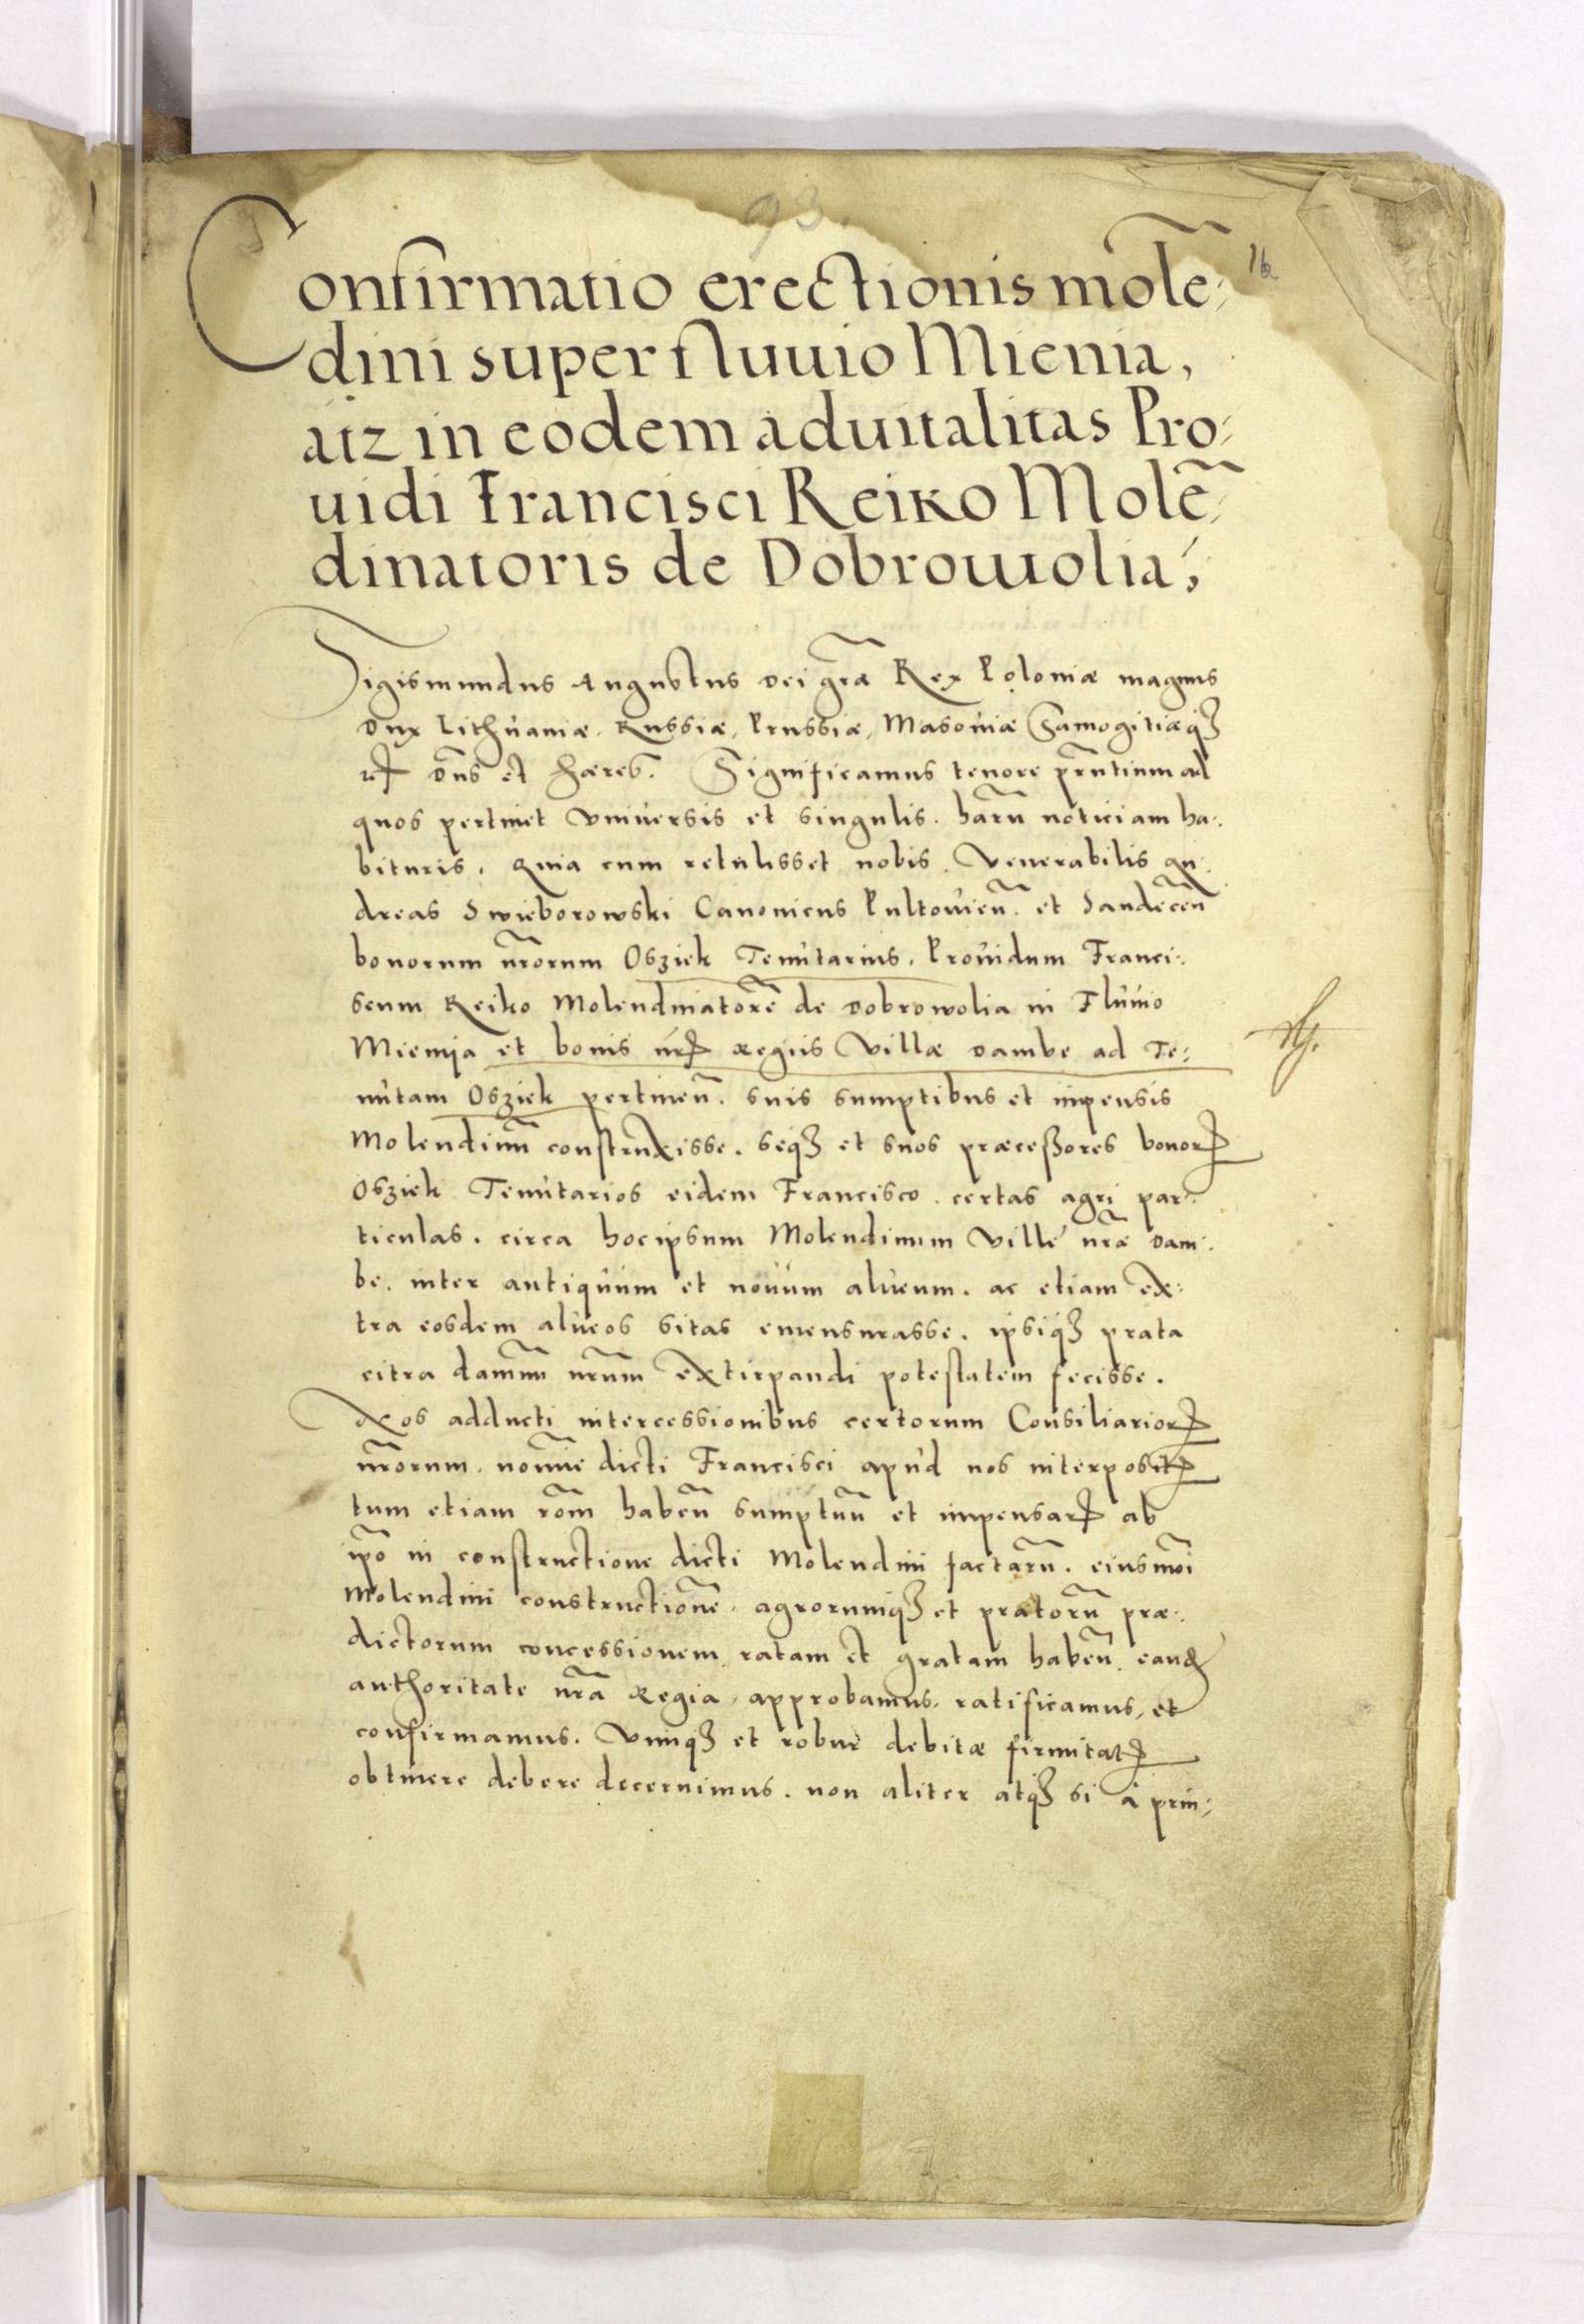 93.
16
Confirmatio erectionis molē-
dini super fluuio Mienia,
atz in eodem aduitalitas Pro-
uidi Francisci Reiko Molē-
dinatoris de Dobrowolia,
Sigismundus Augustus Dei gr̃a Rex Poloniæ magnus
Dux Lithuaniæ, Russiæ, Prussiæ, Masouiæ Samogitiæqȝ
Dñs et hæres. Significamus tenore pr̃ntium ad
quos pertinet vniuersis et singulis. har̃u noticiam ha-
bituris. Quia cum retulisset nobis Venerabilis an-
dreas Swieborowski Canonicus Pultouieñ. et Sandeceñ
bonorum nr̃orum Osziek Tenutarius. Prouidum Franci-
scum Reiko Molendinatorē de Dobrowolia in Fluuio
Mienia et bonis nrꝭ Regiis Villæ Dambe ad Te-
nutam Osziek pertineñ. suis sumptibus et impensis
Molendinū construxisse. seqȝ et suos præceßores bonorꝝ
Osziek Tenutarios eidem Francisco. certas agri par-
ticulas. circa hoc ipsum Molendinum Ville nr̃æ Dam-
be. inter antiquum et nouum alueum. ac etiam ex-
tra eosdem alueos sitas emensurasse. ipsiqȝ prata
citra damnū nr̃um extirpandi potestatem fecisse.
Nos adducti intercessionibus certorum Consiliariorꝝ
nr̃orum. noīe dicti Francisci apud nos interpositꝭ
tum etiam rõm habeñ sumptuū et impensarꝝ ab
ip̃o in constructione dicti Molendini factarū. eiusmõi
Molendini constructionē. agrorumqȝ et pratorū præ-
dictorum concessionem ratam et gratam habeñ. eandꝫ
authoritate nr̃a Regia. approbamus, ratificamus, et
confirmamus. Vimqȝ et robur debitæ firmitatꝭ
obtinere debere decernimus. non aliter atqȝ si à prin-